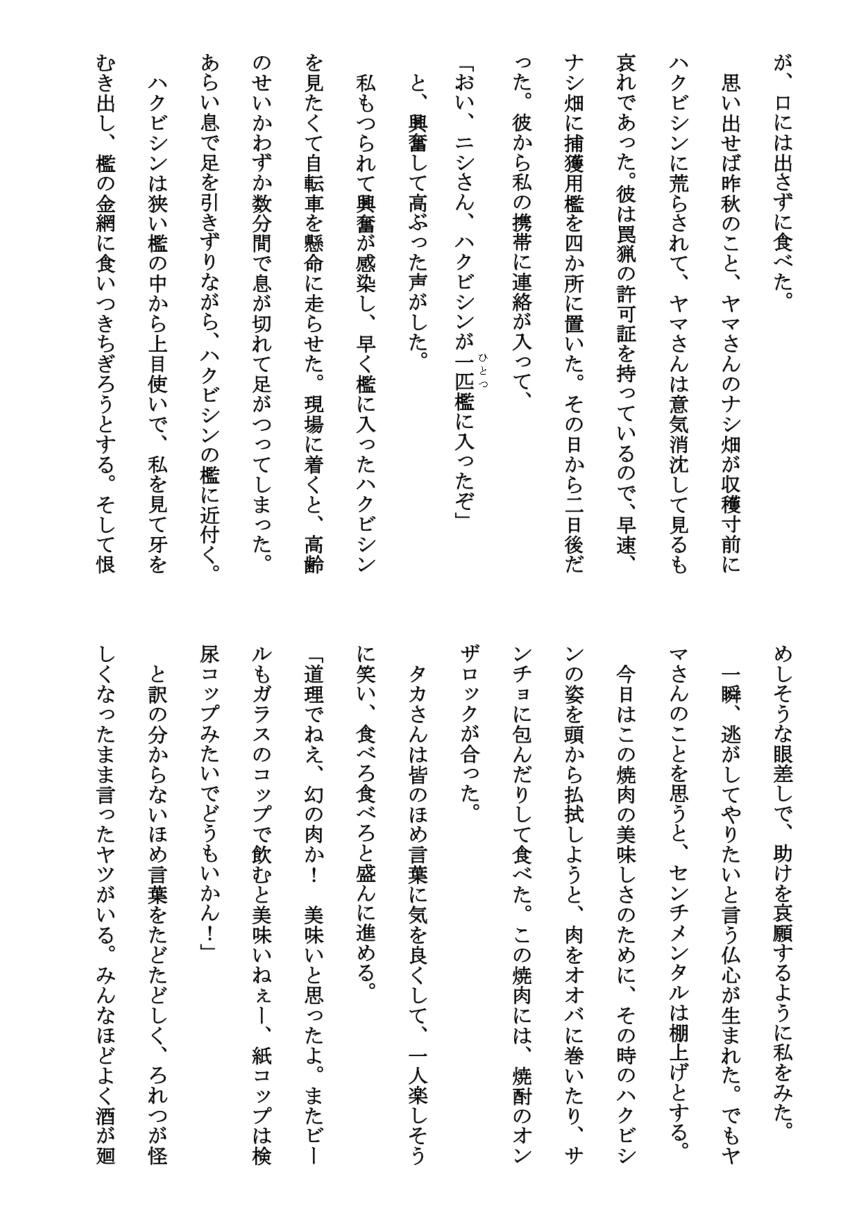 が、口には出さずに食べた。
　思い出せば昨秋のこと、ヤマさんのナシ畑が収穫寸前に
ハクビシンに荒らされて、ヤマさんは意気消沈して見るも
哀れであった。彼は罠猟の許可証を持っているので、早速、
ナシ畑に捕獲用檻を四か所に置いた。その日から二日後だ
った。彼から私の携帯に連絡が入って、
「おい、ニシさん、ハクビシンが一匹檻に入ったぞ」
ひとつ
　と、興奮して高ぶった声がした。
　私もつられて興奮が感染し、早く檻に入ったハクビシン
を見たくて自転車を懸命に走らせた。現場に着くと、高齢
のせいかわずか数分間で息が切れて足がつってしまった。
あらい息で足を引きずりながら、ハクビシンの檻に近付く。
　ハクビシンは狭い檻の中から上目使いで、私を見て牙を
むき出し、檻の金網に食いつきちぎろうとする。そして恨
めしそうな眼差しで、助けを哀願するように私をみた。
　一瞬、逃がしてやりたいと言う仏心が生まれた。でもヤ
マさんのことを思うと、センチメンタルは棚上げとする。
　今日はこの焼肉の美味しさのために、その時のハクビシ
ンの姿を頭から払拭しようと、肉をオオバに巻いたり、サ
ンチョに包んだりして食べた。この焼肉には、焼酎のオン
ザロックが合った。
　タカさんは皆のほめ言葉に気を良くして、一人楽しそう
に笑い、食べろ食べろと盛んに進める。
「道理でねえ、幻の肉か！　美味いと思ったよ。またビー
ルもガラスのコップで飲むと美味いねぇー、紙コップは検
尿コップみたいでどうもいかん！」
　と訳の分からないほめ言葉をたどたどしく、ろれつが怪
しくなったまま言ったヤツがいる。みんなほどよく酒が廻